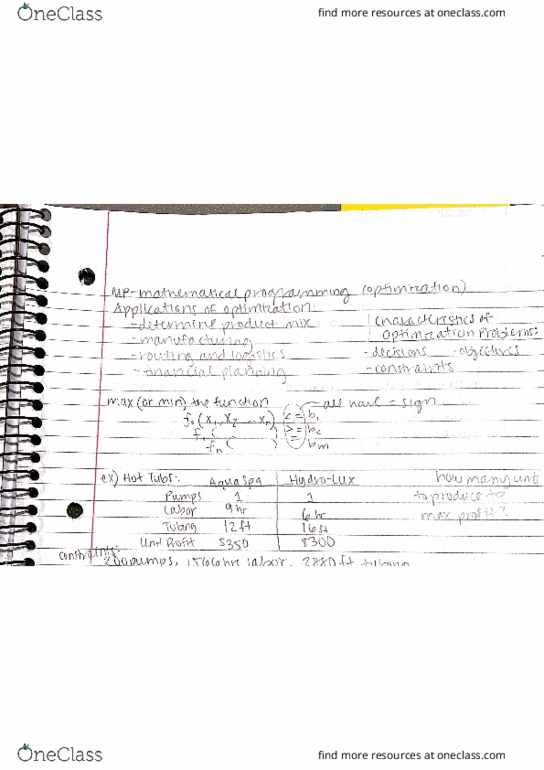 OneClass
find more resources at oneclass.com
MP- mathematical programming (optimization)
Applications of optimization:
-determine product mix
-manufacturing
-routing and logistics
-financial planning
characteristics of
optimization problems:
-decisions -objectives
-constraints
max (or min) the function
all have = sign
f₀(x₁, x₂ ... xₙ) <= b₁
f₁( >= b₂
fₙ( = bₘ
ex) Hot Tubs: AquaSpa Hydro-Lux
Pumps 1 1
Labor 9 hr 6 hr
Tubing 12 ft 16 ft
Unit Profit $350 $300
how many
to produce to
max profit?
constraints:
200 pumps, 1566 hr labor, 2880 ft tubing
OneClass
find more resources at oneclass.com